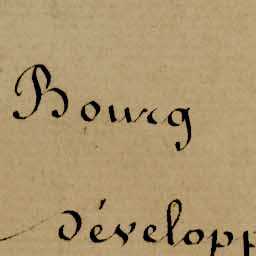 Bourg
développ